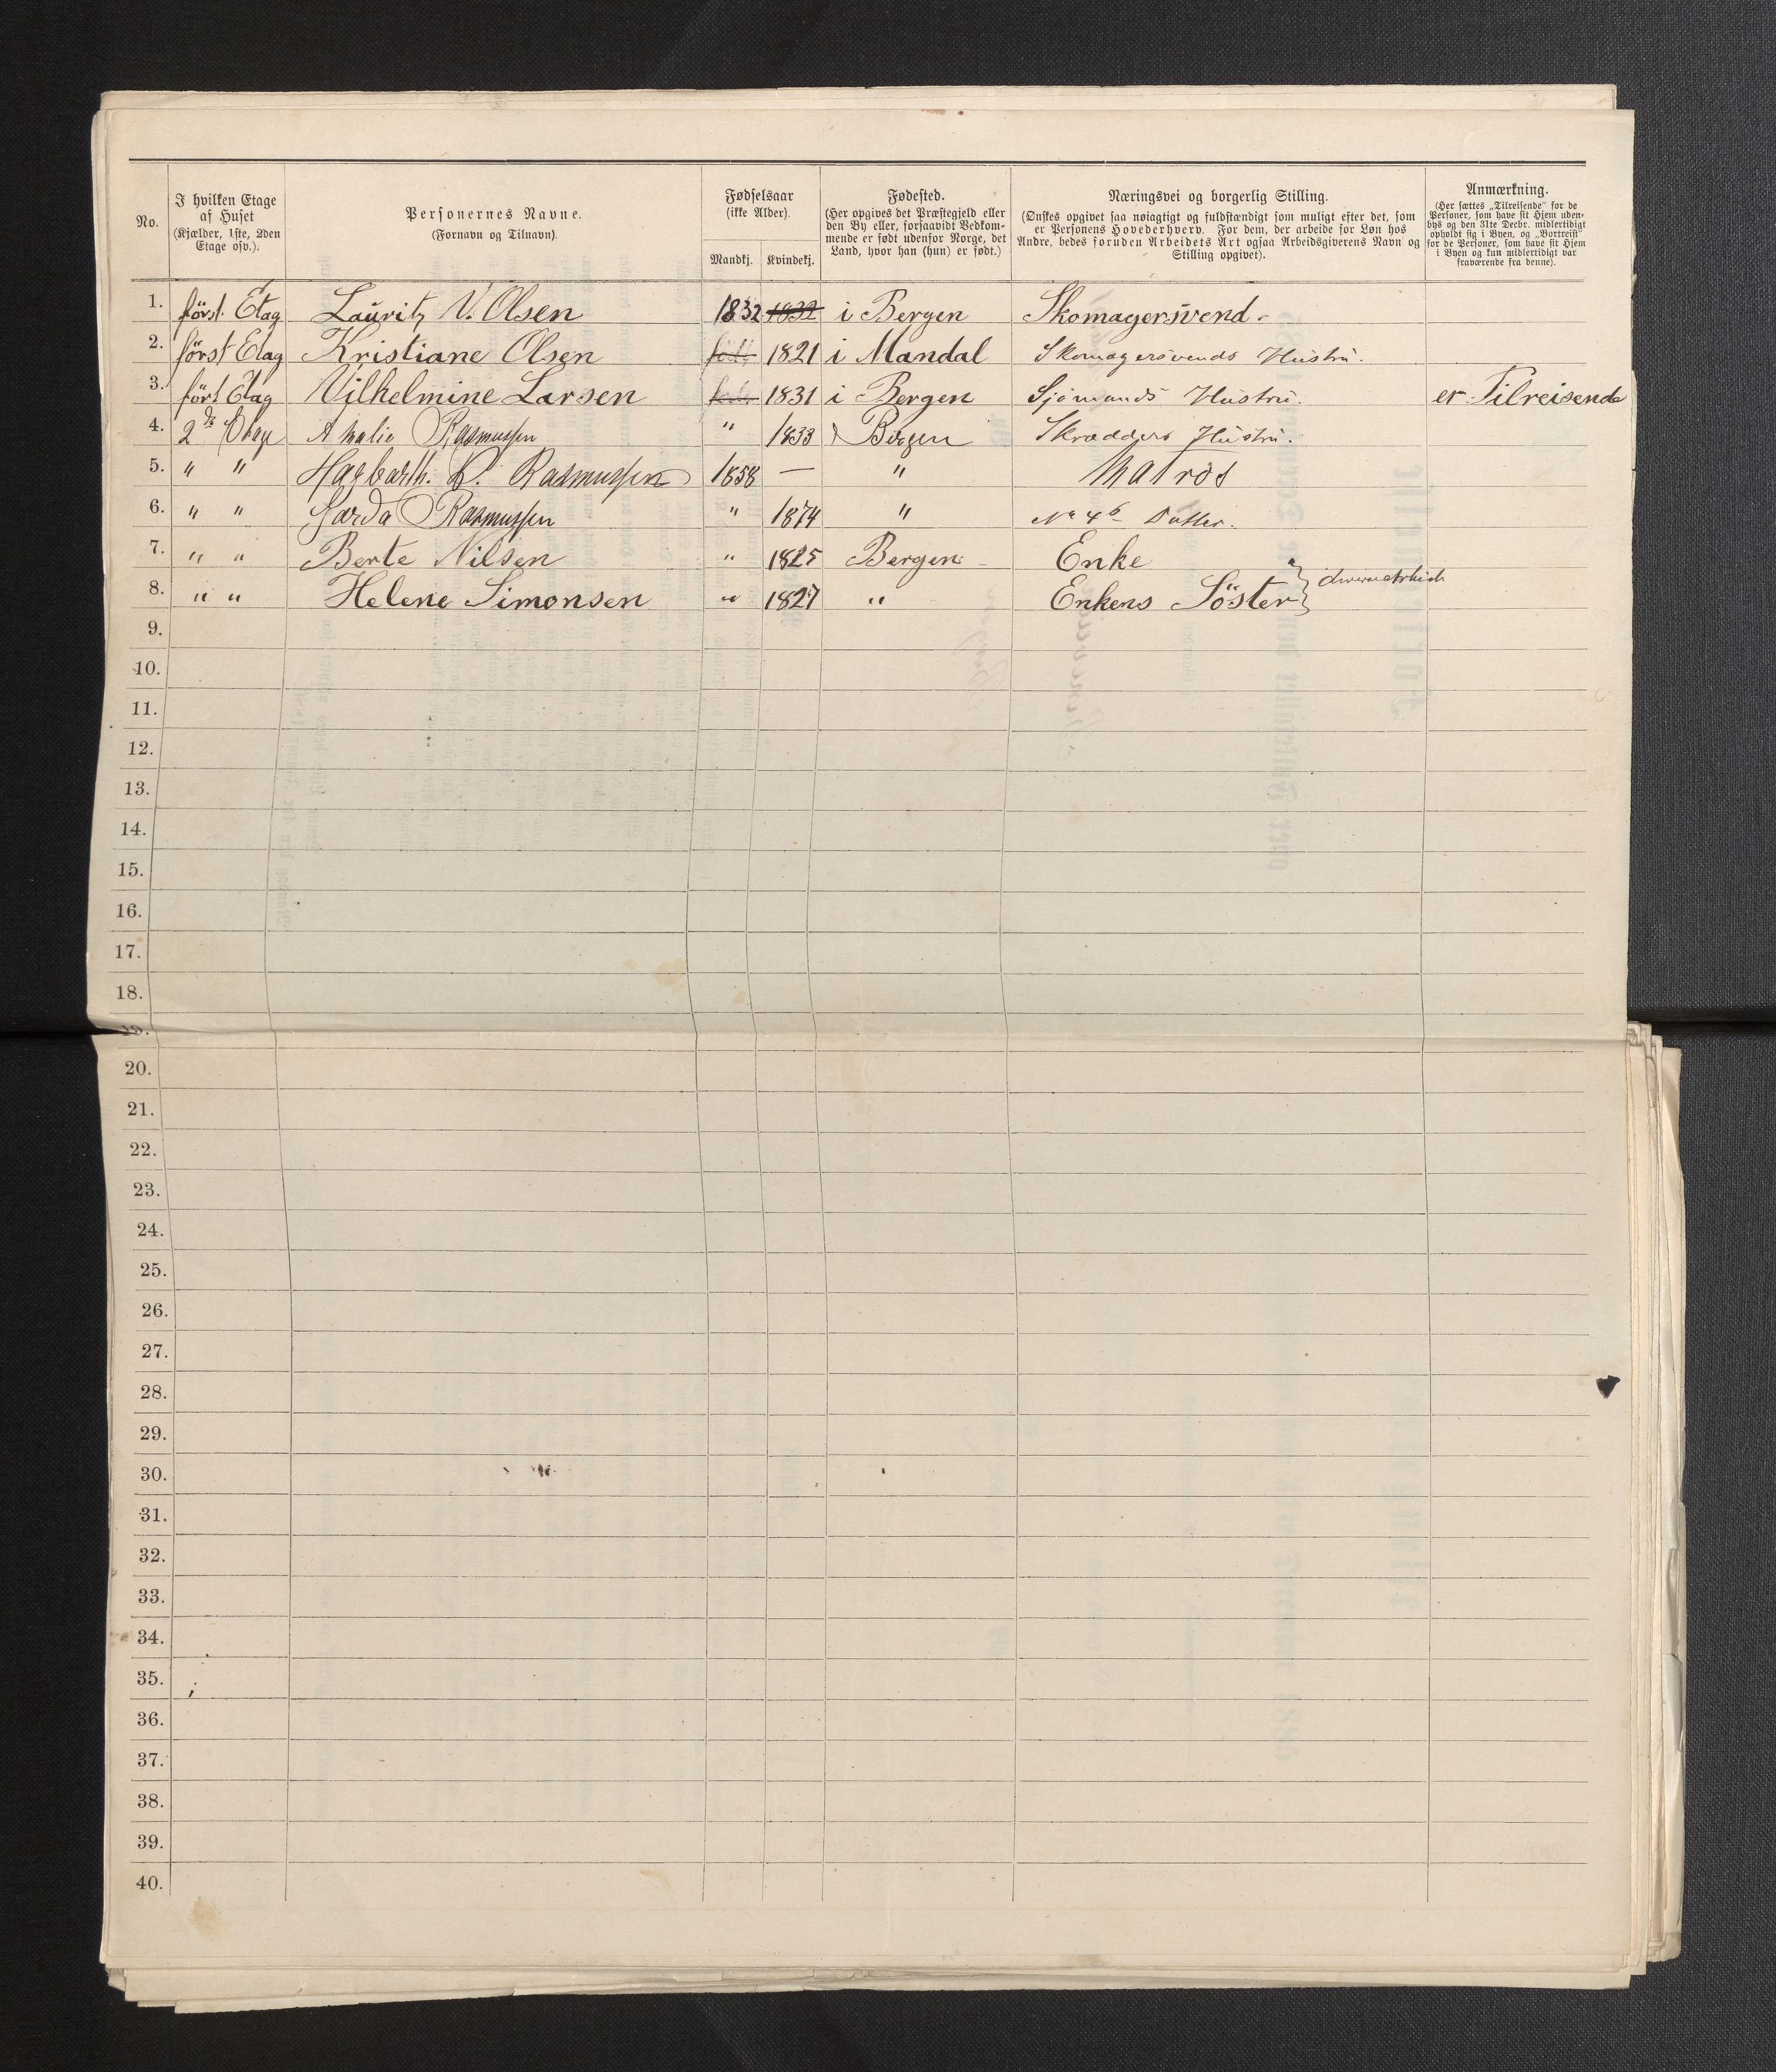 No.
I hvilken Etage
af Huset
(Kjælder, 1ste, 2den
Etage osv.).
Personernes Navne.
(Fornavn og Tilnavn).
Fødselsaar
(ikke Alder).
Mandkj. Kvindekj.
Fødested.
(Her opgives det Præstegjeld eller
den By eller, forsaavidt Vedkom-
mende er født udenfor Norge, det
Land, hvor han (hun) er født.)
Næringsvei og borgerlig Stilling.
(Ønskes opgivet saa nøiagtigt og fuldstændigt som muligt efter det, som
er Personens Hovederhverv. For dem, der arbeide for Løn hos
Andre, bedes foruden Arbeidets Art ogsaa Arbeidsgiverens Navn og
Stilling opgivet).
Anmærkning.
(Her sættes „Tilreisende" for de
Personer, som have sit Hjem uden-
bys og den 31te Decbr. midlertidigt
opholdt sig i Byen, og „Bortreist"
for de Personer, som have sit Hjem
i Byen og kun midlertidigt var
fraværende fra denne).
1. først. Etag Lauritz V. Olsen 1832 1832 i Bergen Skomagersvend.
2. først Etag Kristiane Olsen 1821 i Mandal Skomagersvends Hustru.
3. først Etag Vilhelmine Larsen 1831 i Bergen Sjömands Hustru. er Tilreisende
4. 2de Etage Amalie Rasmussen " 1833 Bergen Skrædders Hustru.
5. " " Hagbarth. R. Rasmussen 1858 — " Matros
6. " " Garda Rasmussen " 1874 " No 4s Datter.
7. " " Berte Nilsen " 1825 Bergen Enke
8. " " Helene Simonsen " 1827 " Enkens Söster
9.
10.
11.
12.
13.
14.
15.
16.
17.
18.
19.
20.
21.
22.
23.
24.
25.
26.
27.
28.
29.
30.
31.
32.
33.
34.
35.
36.
37.
38.
39.
40.